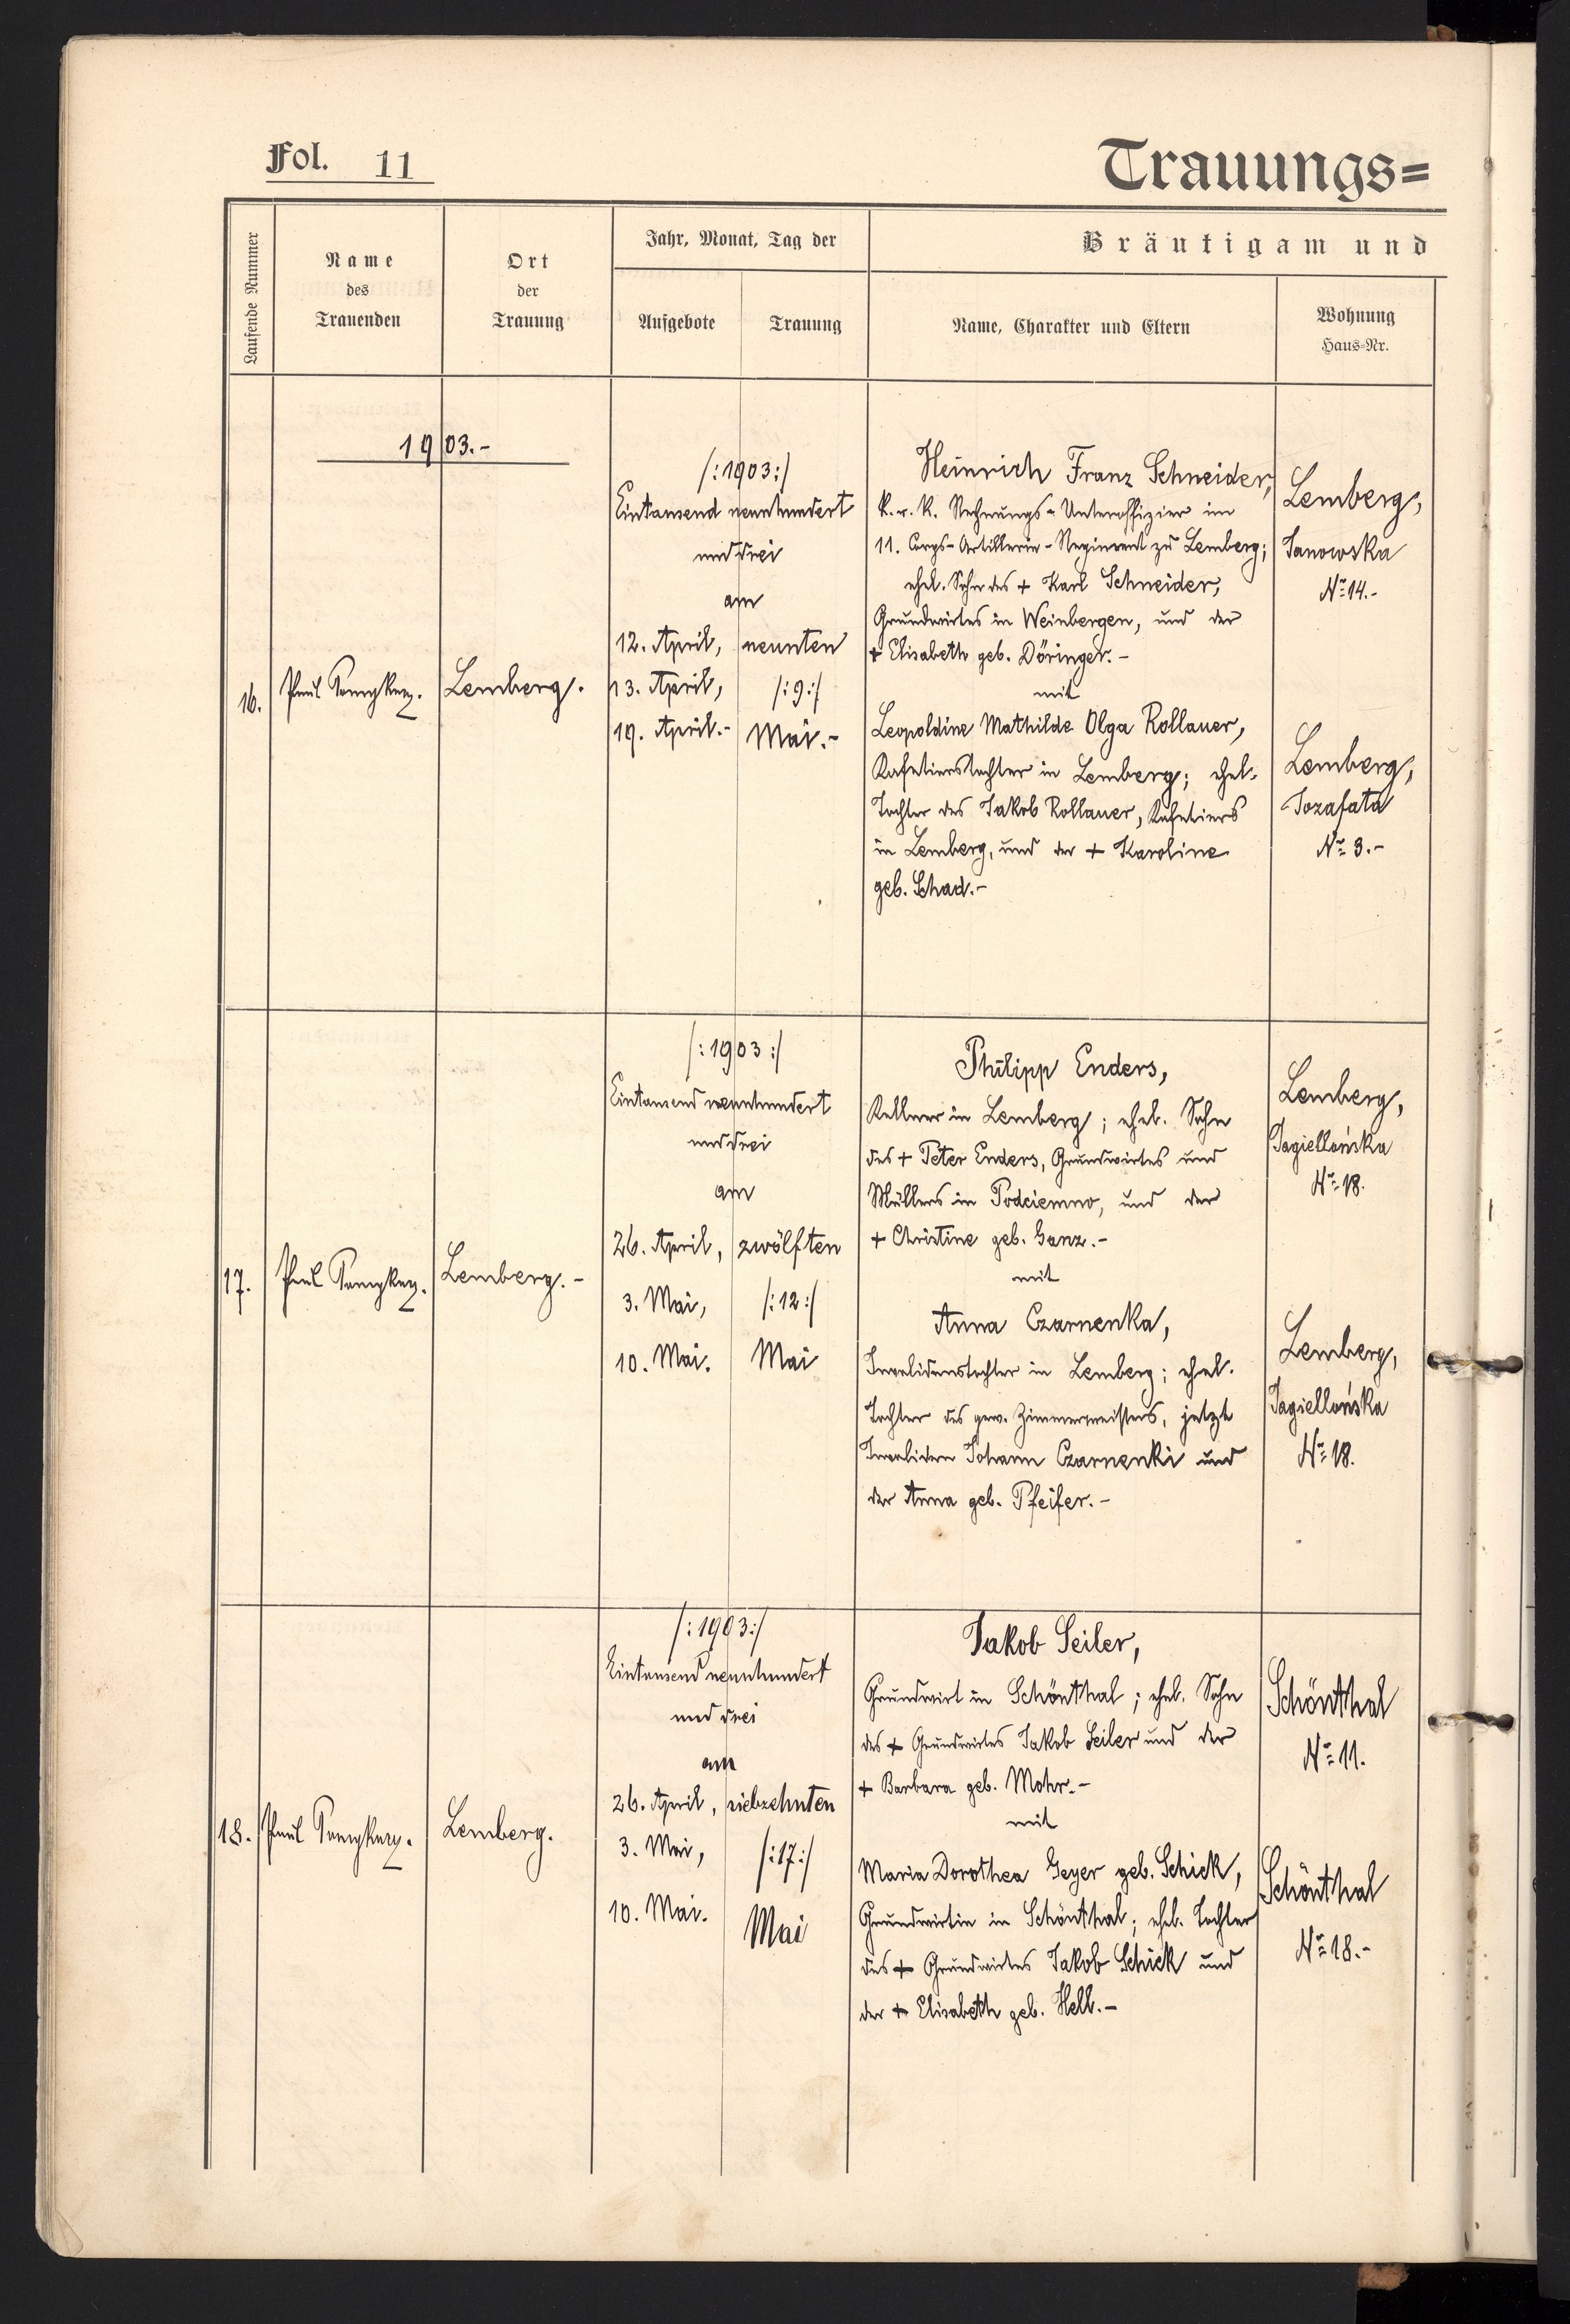 Fol. 11
Trauungs=
Laufende Nummer
Name
des
Trauenden
Ort
der
Trauung
Jahr, Monat, Tag der
Aufgebote
Trauung
Bräutigam und
Name, Charakter und Eltern
Wohnung
Haus=Nr.
1903.-
16.
Paul
Lemberg.
/:1903:/
Eintausend neunhundert
und drei
am
12. April,
13. April,
19. April.-
neunten
/:9:/
Mai.-
Heinrich Franz Schneider,
k. u. k. Rechnungs-Unteroffizier im
11. Corps-Artillerie-Regiment zu Lemberg;
ehel. Sohn des + Karl Schneider,
Grundwirtes in Weinbergen, und der
+ Elisabeth geb. Döringer.-
mit
Leopoldine Mathilde Olga Rollauer,
Kafetierstochter in Lemberg; ehel.
Tochter des Jakob Rollauer, Kafetiers
in Lemberg, und der + Karoline
geb. Schad.-
Lemberg,
Janowska
No 14.-
Lemberg,
Jozafata
No 3.-
17.
Paul
Lemberg.-
/:1903:/
Eintausend neunhundert
und drei
am
26. April,
3. Mai,
10. Mai.
zwölften
/:12:/
Mai
Philipp Enders,
Kellner in Lemberg; ehel. Sohn
des + Peter Enders, Grundwirtes und
Müllers in Podciemno, und der
+ Christine geb. Ganz.-
mit
Anna Czarnenka,
Invalidenstochter in Lemberg; ehel.
Tochter des gew. Zimmermeisters, jetzt
Invaliden Johann Czarnenki und
der Anna geb. Pfeifer.-
Lemberg,
Jagiellońska
No 18.
Lemberg,
Jagiellońska
No 18.
18.
Paul
Lemberg.
/:1903:/
Eintausend neunhundert
und drei
am
26. April,
3. Mai,
10. Mai.
siebzehnten
/:17:/
Mai
Jakob Seiler,
Grundwirt in Schönthal; ehel. Sohn
des + Grundwirtes Jakob Seiler und der
+ Barbara geb. Mohr.-
mit
Maria Dorothea Geyer geb. Schick,
Grundwirtin in Schönthal; ehel. Tochter
des + Grundwirtes Jakob Schick und
der + Elisabeth geb. Hell.-
Schönthal
No 11.
Schönthal
No 18.-